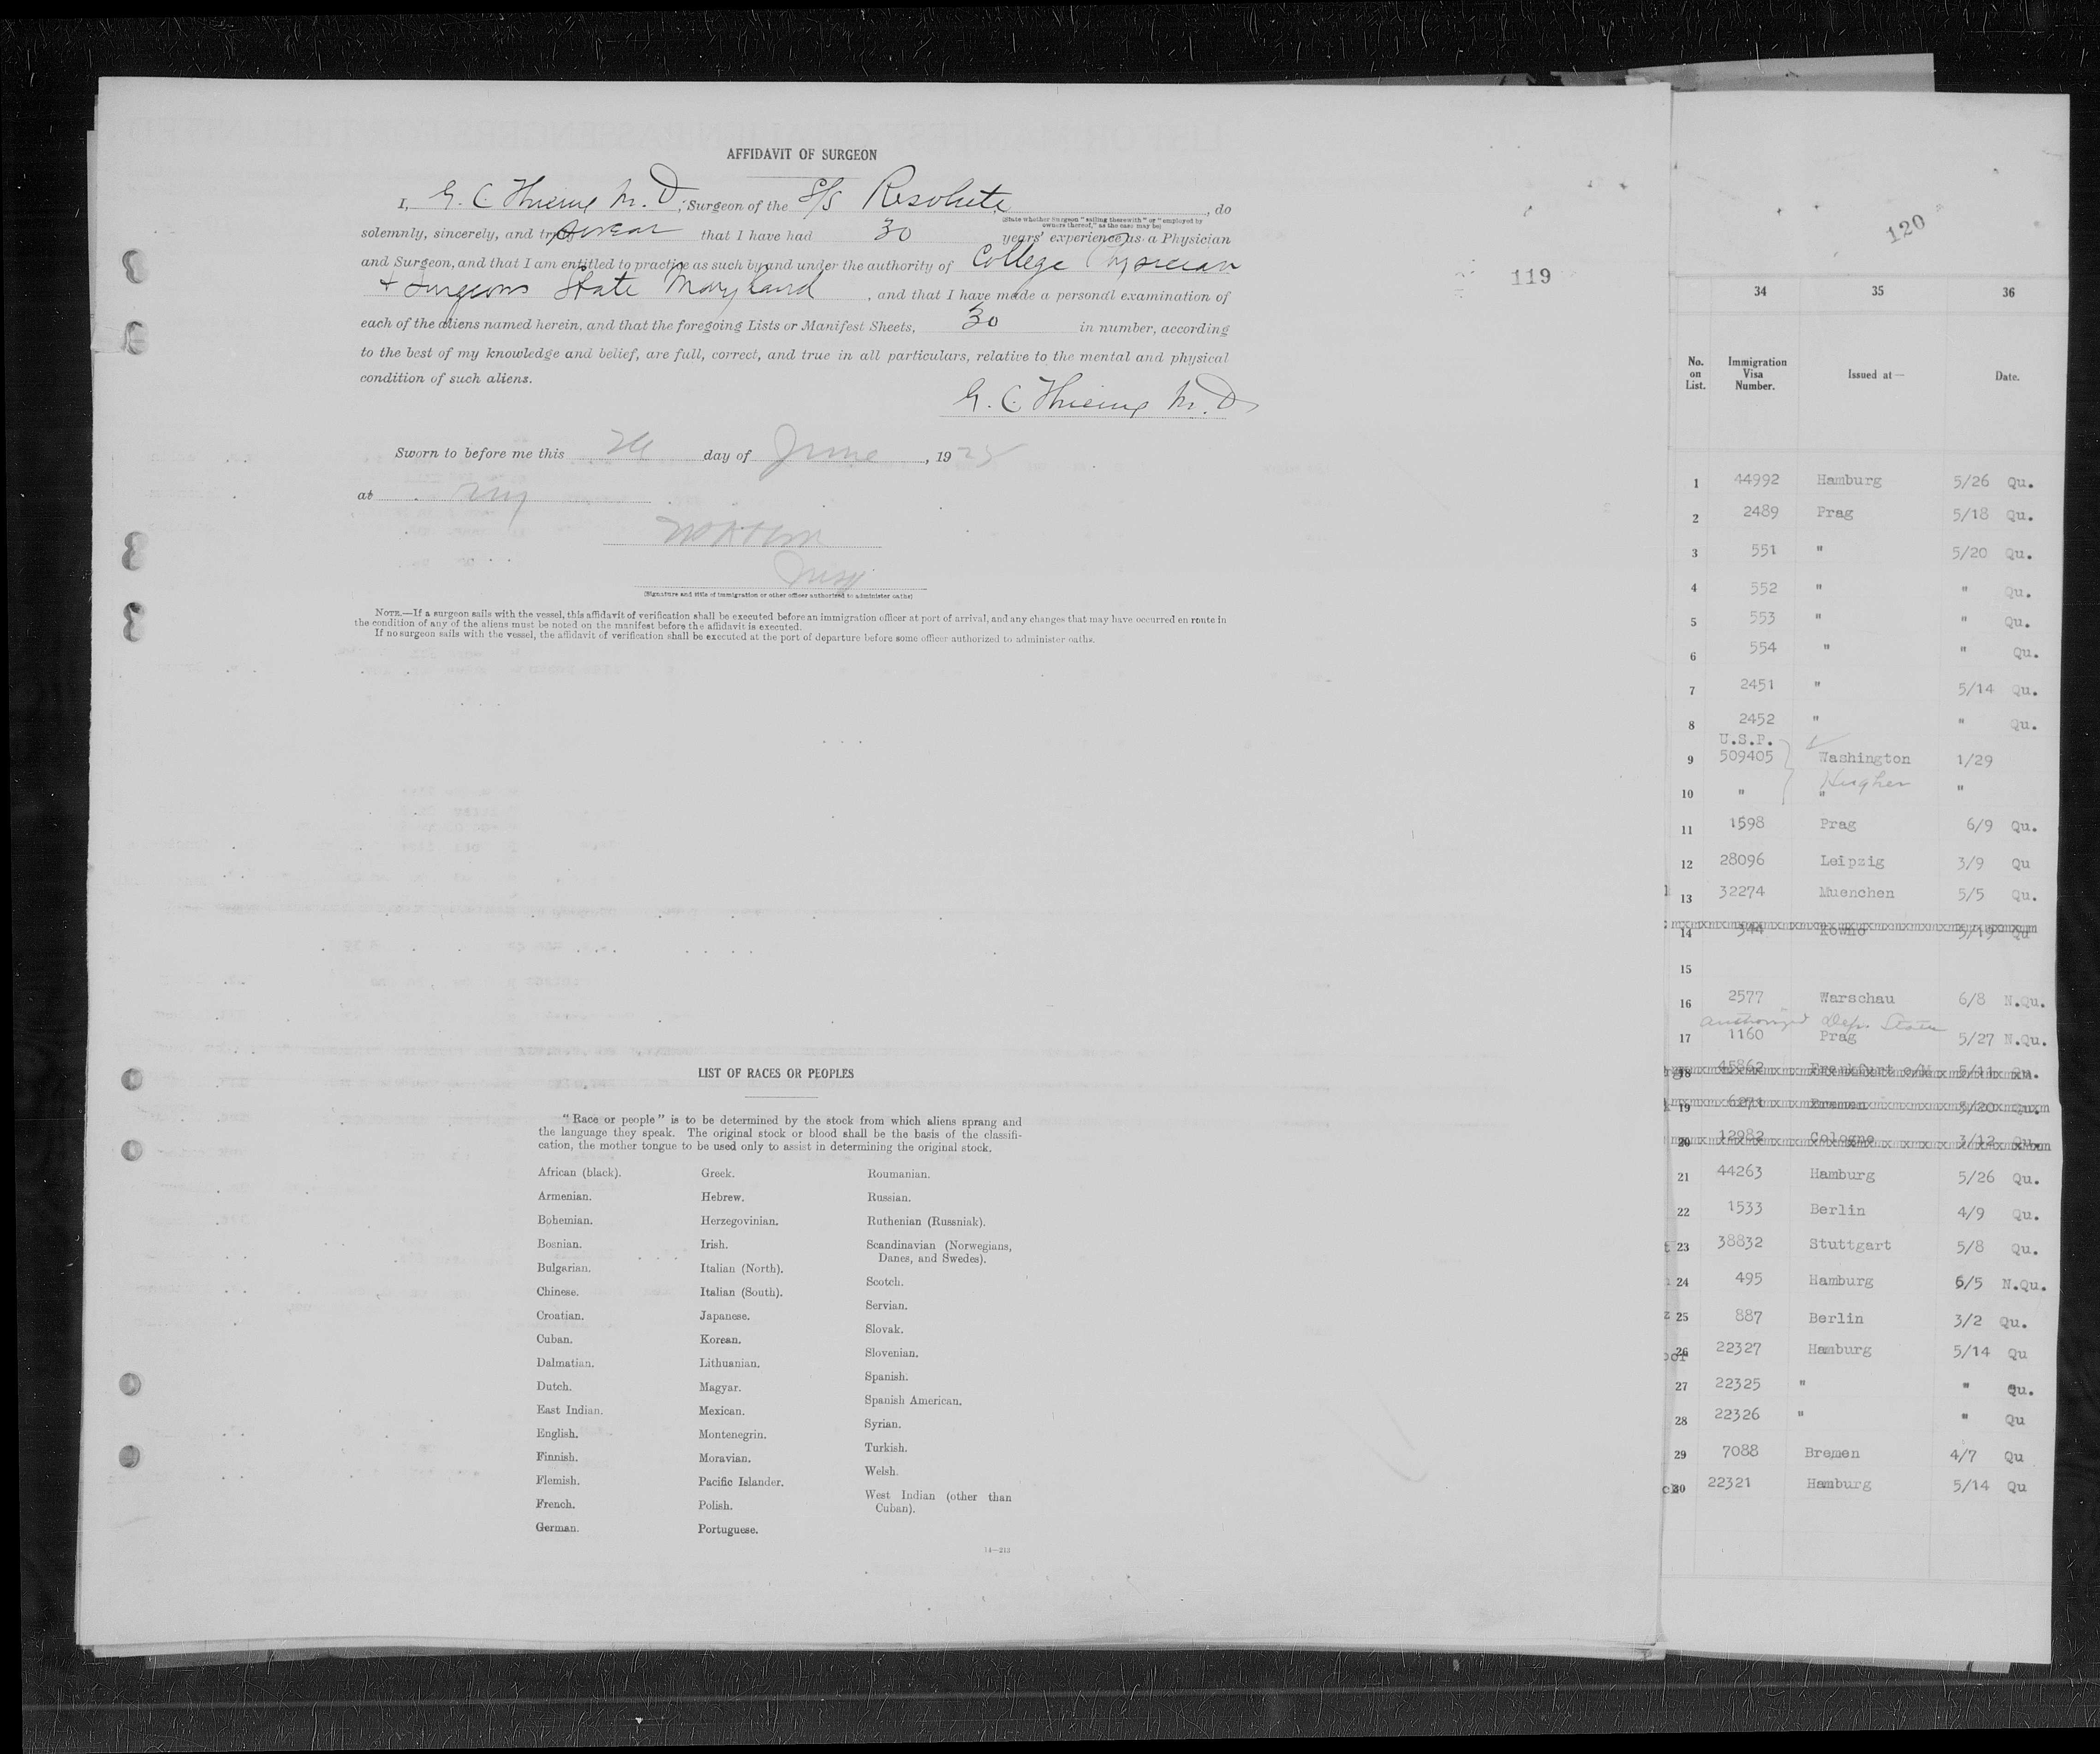 AFFIDAVIT OF SURGEON
I, G. C. M.D., Surgeon of the S/S Resolute, do
(State whether Surgeon "sailing therewith" or "employed by
owners thereof," as the case may be)
solemnly, sincerely, and truly swear that I have had 30 years' experience as a Physician
and Surgeon, and that I am entitled to practice as such by and under the authority of College Physician
+ Surgeons State Maryland, and that I have made a personal examination of
each of the aliens named herein, and that the foregoing Lists or Manifest Sheets, 30 in number, according
to the best of my knowledge and belief, are full, correct, and true in all particulars, relative to the mental and physical
condition of such aliens.
G. C. M.D
Sworn to before me this day of June, 1925
at NY
(Signature and title of immigration or other officer authorized to administer oaths)
NOTE.—If a surgeon sails with the vessel, this affidavit of verification shall be executed before an immigration officer at port of arrival, and any changes that may have occurred en route in
the condition of any of the aliens must be noted on the manifest before the affidavit is executed.
If no surgeon sails with the vessel, the affidavit of verification shall be executed at the port of departure before some officer authorized to administer oaths.
119
LIST OF RACES OR PEOPLES
"Race or people" is to be determined by the stock from which aliens sprang and
the language they speak. The original stock or blood shall be the basis of the classifi-
cation, the mother tongue to be used only to assist in determining the original stock.
African (black).
Armenian.
Bohemian.
Bosnian.
Bulgarian.
Chinese.
Croatian.
Cuban.
Dalmatian.
Dutch.
East Indian.
English.
Finnish.
Flemish.
French.
German.
Greek.
Hebrew.
Herzegovinian.
Irish.
Italian (North).
Italian (South).
Japanese.
Korean.
Lithuanian.
Magyar.
Mexican.
Montenegrin.
Moravian.
Pacific Islander.
Polish.
Portuguese.
Roumanian.
Russian.
Ruthenian (Russniak).
Scandinavian (Norwegians,
Danes, and Swedes).
Scotch.
Servian.
Slovak.
Slovenian.
Spanish.
Spanish American.
Syrian.
Turkish.
Welsh.
West Indian (other than
Cuban).
14—213
120
34 35 36
No. on List. Immigration Visa Number. Issued at— Date.
1 44992 Hamburg 5/26 Qu.
2 2489 Prag 5/18 Qu.
3 551 " 5/20 Qu.
4 552 " " Qu.
5 553 " " Qu.
6 554 " " Qu.
7 2451 " 5/14 Qu.
8 2452 " " Qu.
U.S.P.
9 509405 Washington 1/29
Hughes
10 " " "
11 1598 Prag 6/9 Qu.
12 28096 Leipzig 3/9 Qu
13 32274 Muenchen 5/5 Qu.
14 344 Kowno 5/19 Qu
15
16 2577 Warschau 6/8 N.Qu.
authorized Dep. State
17 1160 Prag 5/27 N.Qu.
18 45862 Frankfurt a/M 5/11 Qu.
19 6271 Bremen 3/20 Qu.
20 12982 Cologne 3/12 Qu.
21 44263 Hamburg 5/26 Qu.
22 1533 Berlin 4/9 Qu.
23 38832 Stuttgart 5/8 Qu.
24 495 Hamburg 6/5 N.Qu.
25 887 Berlin 3/2 Qu.
26 22327 Hamburg 5/14 Qu
27 22325 " " Qu.
28 22326 " " Qu
29 7088 Bremen 4/7 Qu
30 22321 Hamburg 5/14 Qu